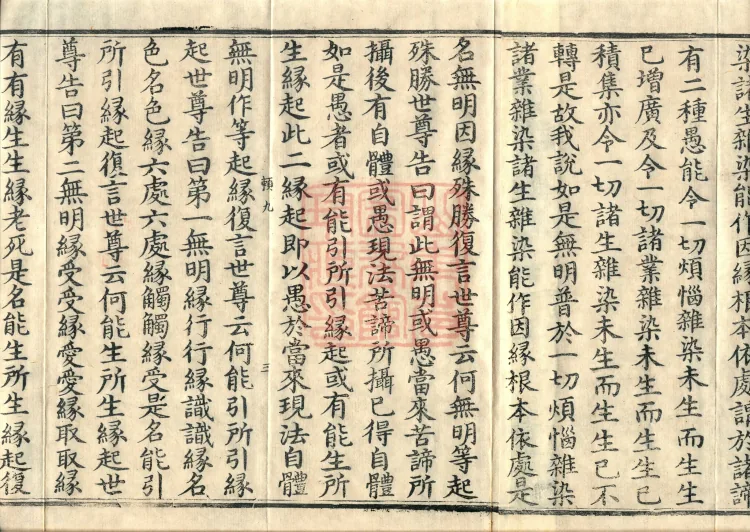 染諸生雜染能作因緣根本依處謂於諸諦
有二種愚能令一切煩惱雜染未生而生生
已增廣及令一切諸業雜染未生而生生已
積集亦令一切諸生雜染未生而生生已不
轉是故我說如是無明普於一切煩惱雜染
諸業雜染諸生雜染能作因緣根本依處是
名無明因緣殊勝復言世尊云何無明等起
殊勝世尊告曰謂此無明或愚當來苦諦所
攝後有自體或愚現法苦諦所攝已得自體
如是愚者或有能引所引緣起或有能生所
生緣起此二緣起即以愚於當來現法自體
頓九 三
無明作等起緣復言世尊云何能引所引緣
起世尊告曰第一無明緣行行緣識識緣名
色名色緣六處六處緣觸觸緣受是名能引
所引緣起復言世尊云何能生所生緣起世
尊告曰第二無明緣受受緣愛愛緣取取緣
有有緣生生緣老死是名能生所生緣起復